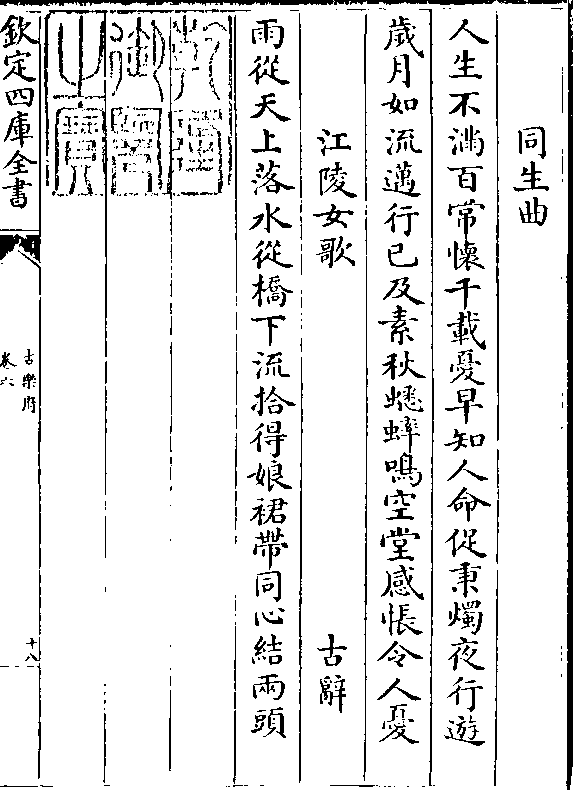 同生曲
人生不滿百常懷千載憂早知人命促秉燭夜行遊
歲月如流邁行已及素秋蟋蟀鳴空堂感悵令人憂
江陵女歌 古辭
雨從天上落水從橋下流拾得娘裙帶同心結兩頭
乾隆
御覽
之寶
欽定四庫全書
古樂府
卷六
十八